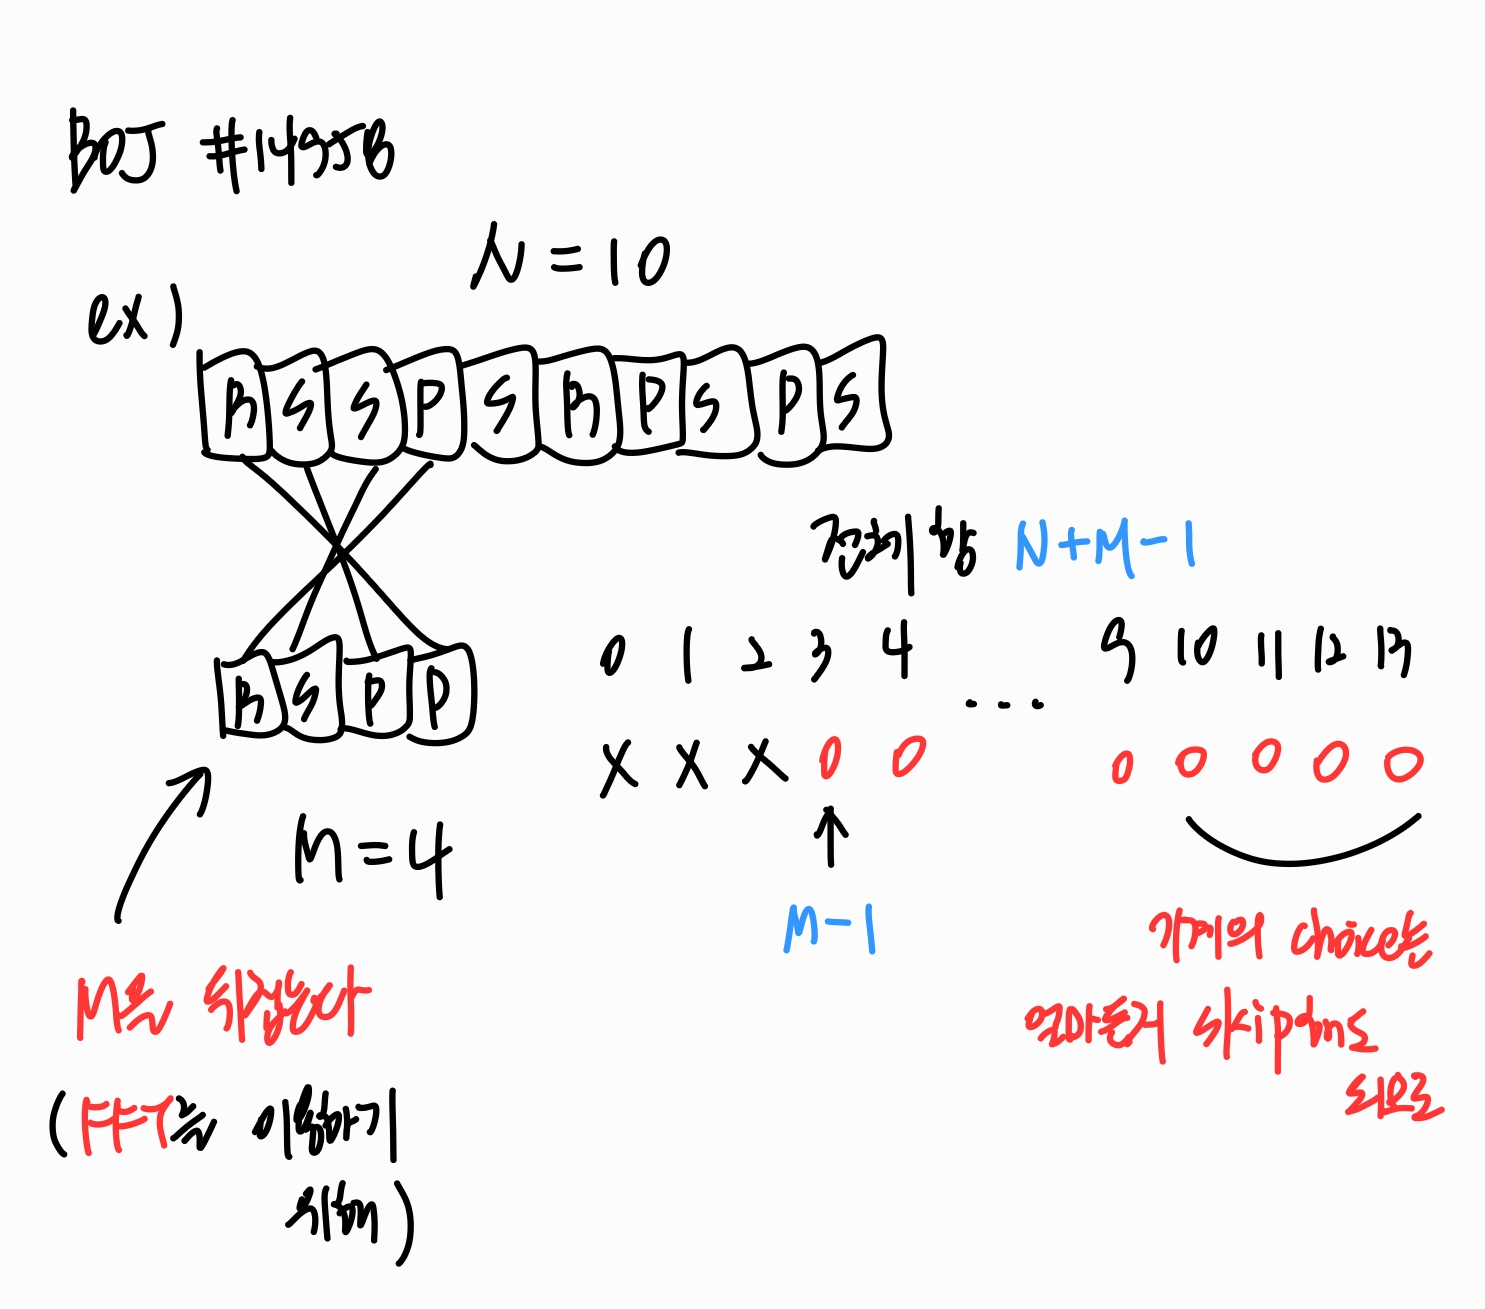 BOJ #14958
N = 10
ex)
R S S P S R P S P S
전체 항 N+M-1
0 1 2 3 4 ... 9 10 11 12 13
R S P P
X X X O O O O O O O
M=4
M-1
기계의 choice는
M은 뒤집는다
얼마든지 skip해도
되므로
(FFT를 이용하기
위해)